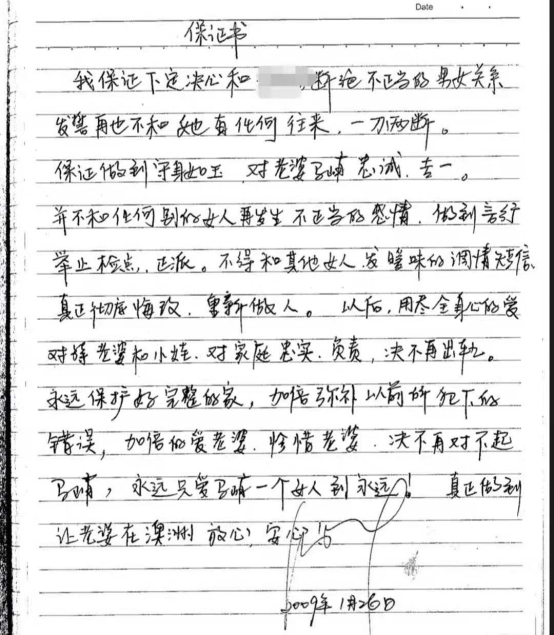 Date
保证书
我保证下定决心和 断绝不正当的男女关系
发誓再也不和她有任何往来，一刀两断。
保证做到守身如玉，对老婆马 忠诚，专一。
并不和任何别的女人再发生不正当的感情，做到言行
举止检点，正派。不得和其他女人发暧昧的调情短信，
真正彻底悔改，重新做人。以后，用尽全身心的爱
对待老婆和小娃，对家庭忠实，负责，决不再出轨。
永远保护好完整的家，加倍弥补以前所犯下的
错误，加倍的爱老婆，珍惜老婆，决不再对不起
马 ，永远只爱马 一个女人到永远！真正做到
让老婆在澳洲放心，安心！
2009年1月26日